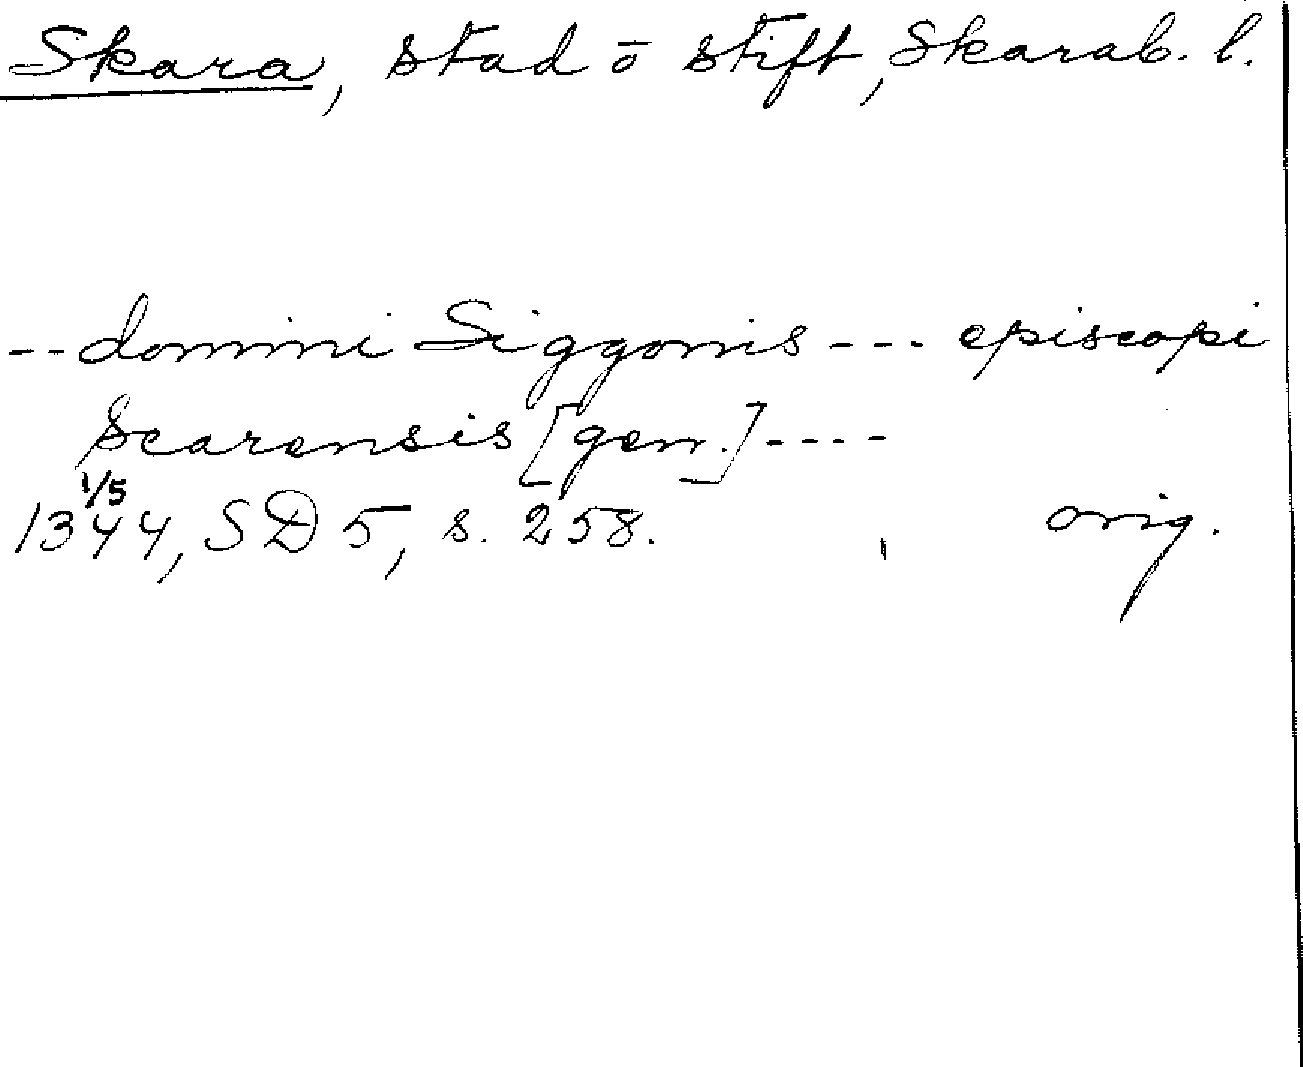 Skara, stad o stift, Skarab. l.
-- domini Siggonis --- episcopi
Scarensis [gen.] ----
1/5
1344, SD 5, s. 258. orig.